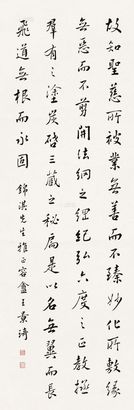 故知聖慈所被業無善而不臻妙化所敷緣
無惡而不翦開法綱之綱紀弘六度之正教拯
群有之塗炭啓三藏之秘扃是以名無翼而長
飛道無根而永固 錦淇先生雅正 容盦王景琦